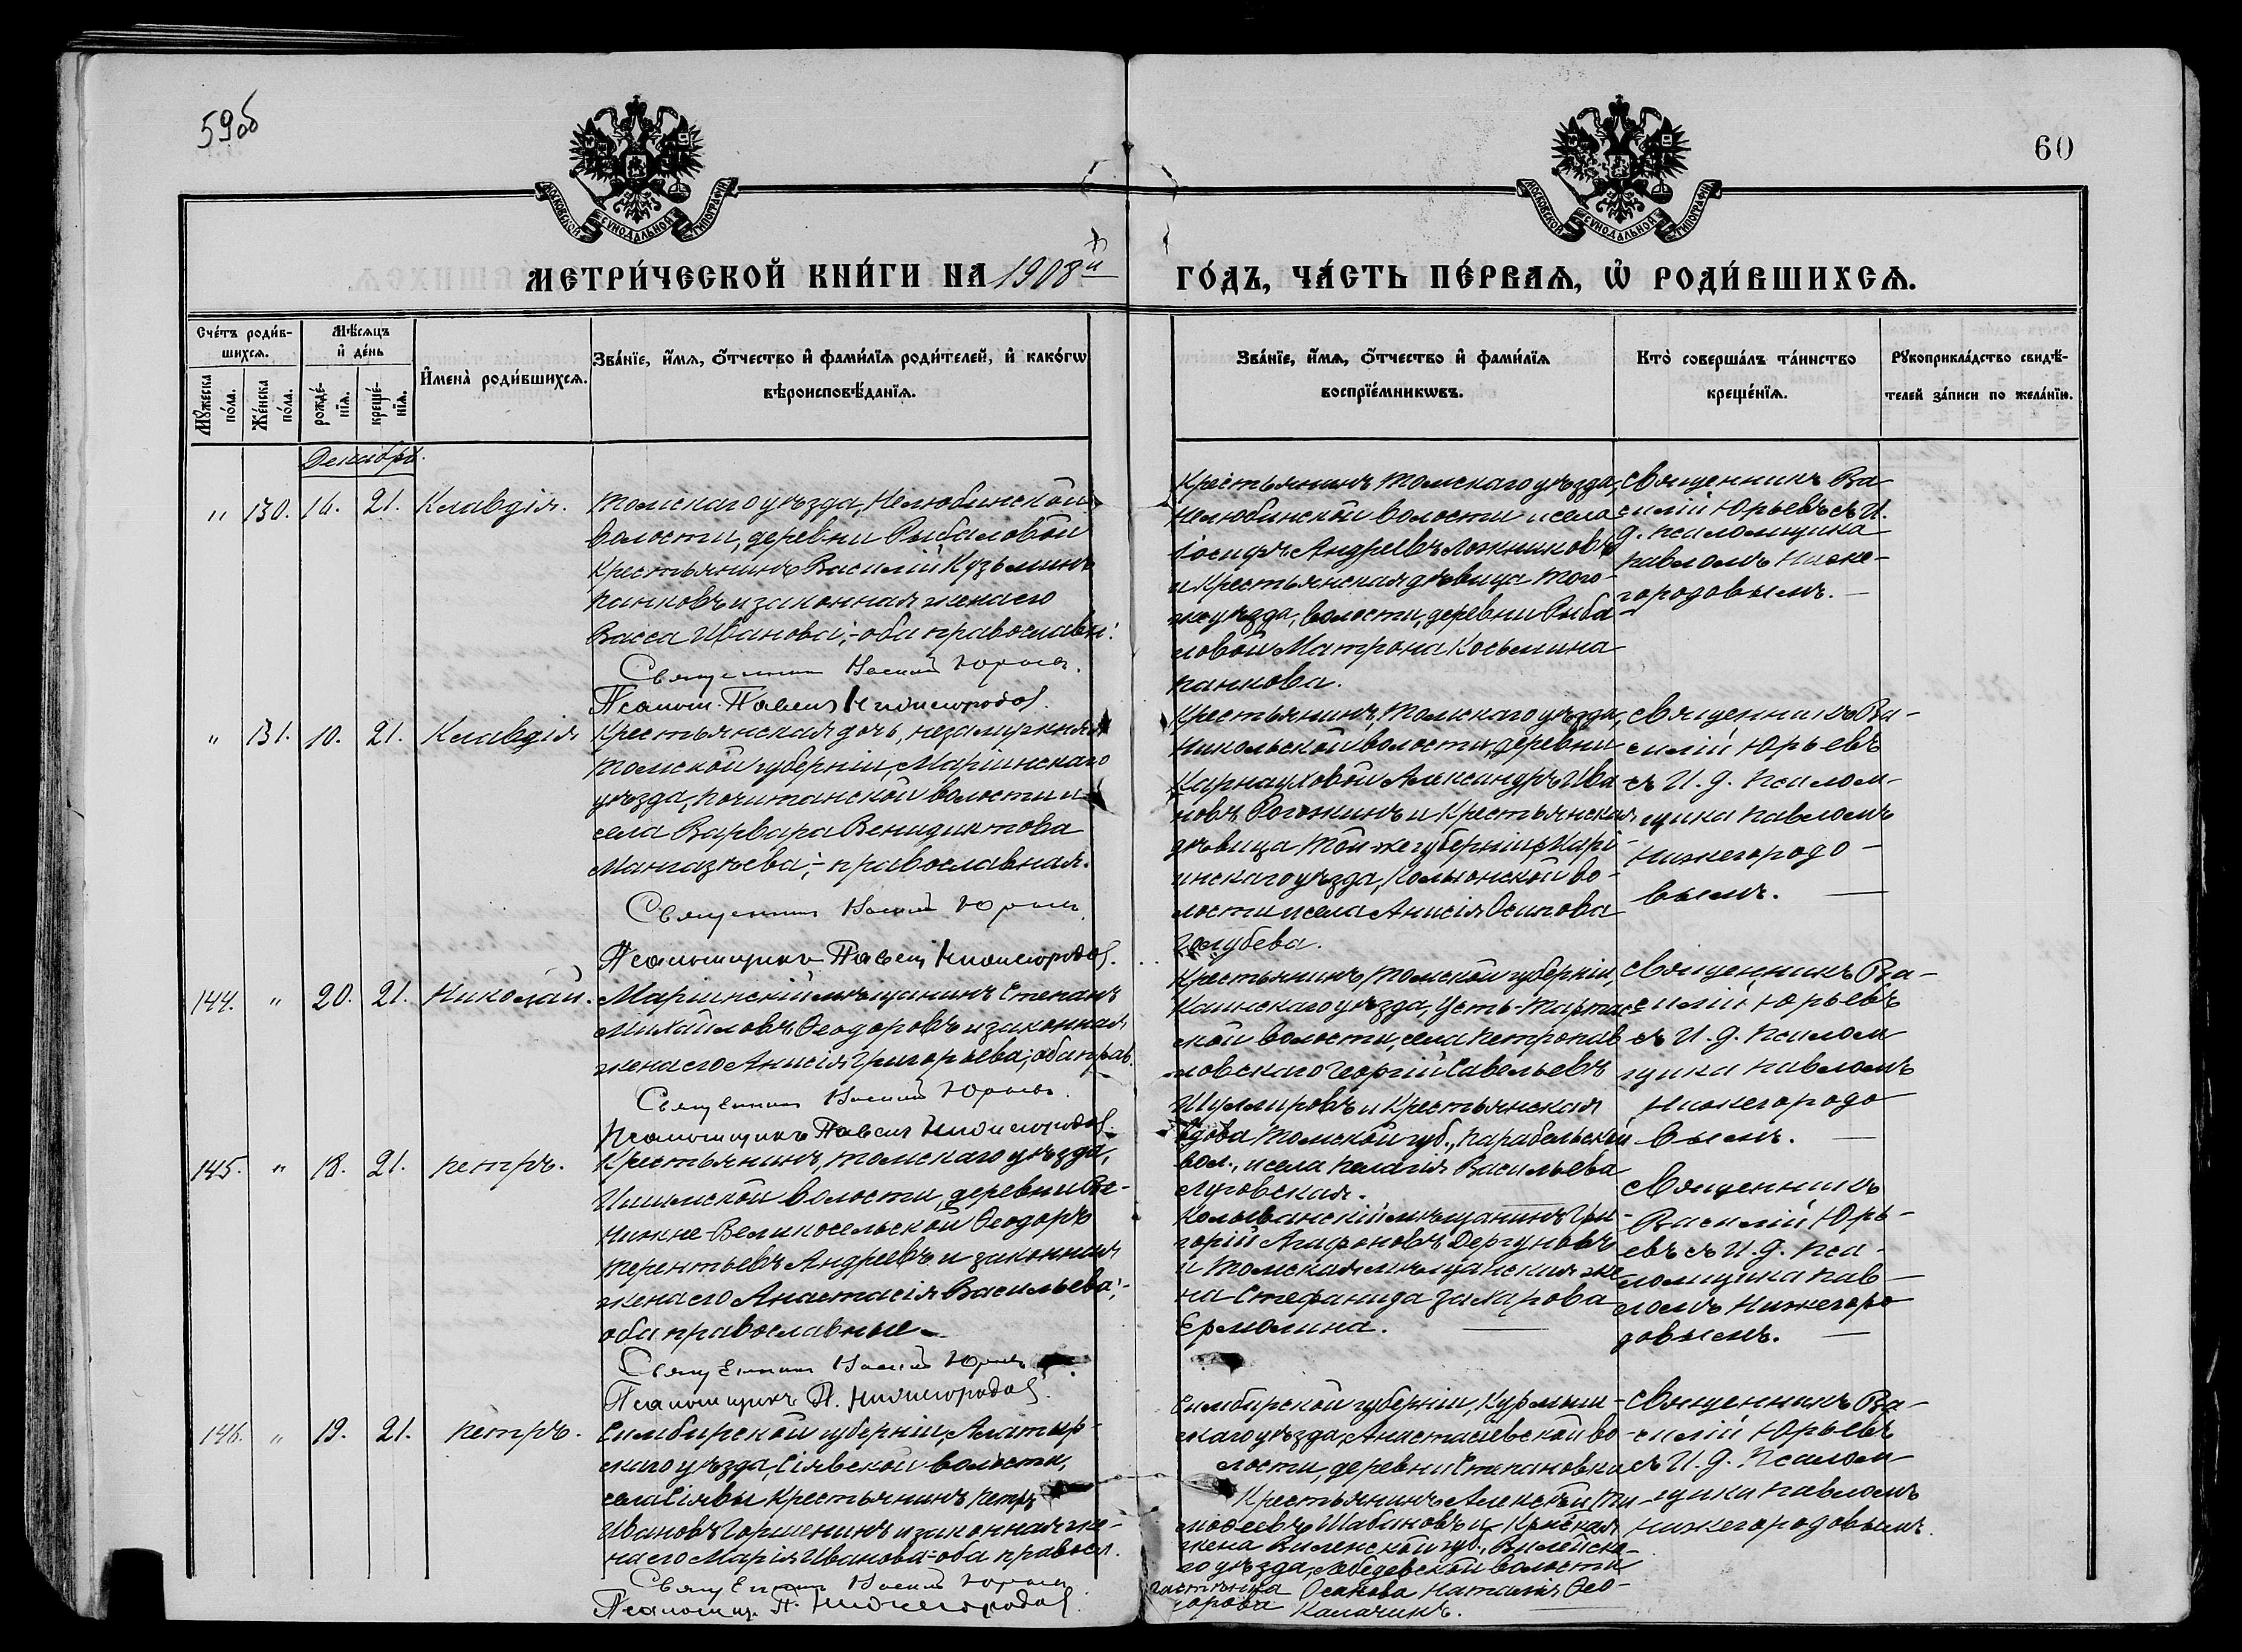 59об
60
МОСКОВСКОЙ СУНОДАЛЬНОЙ ТИПОГРАФІИ
МОСКОВСКОЙ СУНОДАЛЬНОЙ ТИПОГРАФІИ
МЕТРИ́ЧЕСКОЙ КНИ́ГИ НА 1908й
ГО́ДЪ, ЧА́СТЬ ПЕ́РВАѦ, Ѡ҆ РОДИ́ВШИХСѦ.
Сче́тъ роди́в-
шихсѧ.
Мѣ́сѧцъ
и҆ де́нь
Мꙋ́жеска
по́ла.
Же́нска
по́ла.
рожде́-
нїѧ.
креще́-
нїѧ.
И҆мена̀ роди́вшихсѧ.
Зва́нїе, и҆́мѧ, ѻ҆́тчество и҆ фами́лїѧ роди́телей, и҆ како́гѡ
вѣроисповѣ́данїѧ.
Зва́нїе, и҆́мѧ, ѻ҆́тчество и҆ фами́лїѧ
воспрїе́мникѡвъ.
Кто̀ соверша́лъ та́инство
креще́нїѧ.
Рꙋкоприкла́дство свидѣ́-
телей за́писи по жела́нїю.
Декабрь.
" 130. 16. 21. Клавдія.
Томскаго уѣзда, Нелюбинской
волости, деревни Рыбаловой
крестьянинъ Василій Кузьминъ
Панковъ и законная жена его
Васса Иванова; - оба православн:
Священникъ Василій Юрьевъ.
Псаломщ. Павелъ Нижегородов.
Крестьянинъ Томскаго уѣзда,
Нелюбинской волости и села
Іосифъ Андреевъ Ложниковъ
и крестьянская дѣвица того-
же уѣзда, волости, деревни Рыба
ловой Матрона Косьмина
Панкова.
Священникъ Ва-
силій Юрьевъ съ И.
д. псаломщика
Павломъ Ниже-
городовымъ. —
" 131. 10. 21. Клавдія
Крестьянская дочь, незамужняя
Томской губерніи, Маріинскаго
уѣзда, Почитанской волости и
села Варвара Венидиктова
Мангазѣева; - православная.
Священникъ Василій Юрьевъ.
Псаломщикъ Павелъ Нижегородов.
Крестьянинъ, Томскаго уѣзда,
Никольской волости, деревни
Карнауховой Александръ Ива
новъ Рогожинъ и крестьянская
дѣвица той же губерніи, Марі-
инскаго уѣзда, Колыонской во-
лости и села Анисія Осипова
Голубева.
Священникъ Ва-
силій Юрьевъ
съ И. д. псалом-
щика Павломъ
Нижегородо-
вымъ. —
144. " 20. 21. Николай.
Маріинскій мѣщанинъ Степанъ
Михайловъ Ѳеодоровъ и законная
жена его Анисія Григорьева; оба прав.
Священникъ Василій Юрьевъ.
Псаломщикъ Павелъ Нижегородов.
Крестьянинъ, Томской губерніи,
Каинскаго уѣзда, Усть-Тартас-
ской волости, села Петропав
ловскаго Георгій Савельевъ
и крестьянская
вдова Томской губ., Парабельской
вол., и села Пелагія Васильева
Луговская.
Священникъ Ва-
силій Юрьевъ
съ И. д. псалом
щика Павломъ
Нижегородо
вымъ. —
145. " 18. 21. Петръ.
Крестьянинъ, Томскаго уѣзда,
Ишимской волости, деревни
Нижне-Великосельской Ѳеодоръ
Терентьевъ Андреевъ и законная
жена его Анастасія Васильева; -
оба православные.
Священникъ Василій Юрьевъ.
Псаломщикъ П. Нижегородов.
Колыванскій мѣщанинъ Гри-
горій Агафоновъ Дергуновъ
и Томская мѣщанская же
на Стефанида Захарова
Ермолина. —
Священникъ
Василій Юрь-
евъ съ И. д. пса-
ломщика Пав-
ломъ Нижегоро
довымъ. —
146. " 19. 21. Петръ.
Симбирской губерніи, Алатыр-
скаго уѣзда, Сіявской волости,
села Сіявы крестьянинъ Петръ
Ивановъ Горшенинъ и законная же-
на его Марія Иванова - оба правосл.
Священникъ Василій Юрьевъ
Псаломщ. П. Нижегородов.
Симбирской губерніи, Курмыш-
скаго уѣзда, Анастасіевской во
лости, деревни Степановки
крестьянинъ Алексѣй Ти-
моѳеевъ Шабановъ и
жена Виленской губ., Вилейска-
го уѣзда, Лебедевской волости
Наталія Ѳео-
дорова
Священникъ Ва-
силій Юрьевъ
съ И. д. псалом-
щика Павломъ
Нижегородовымъ.